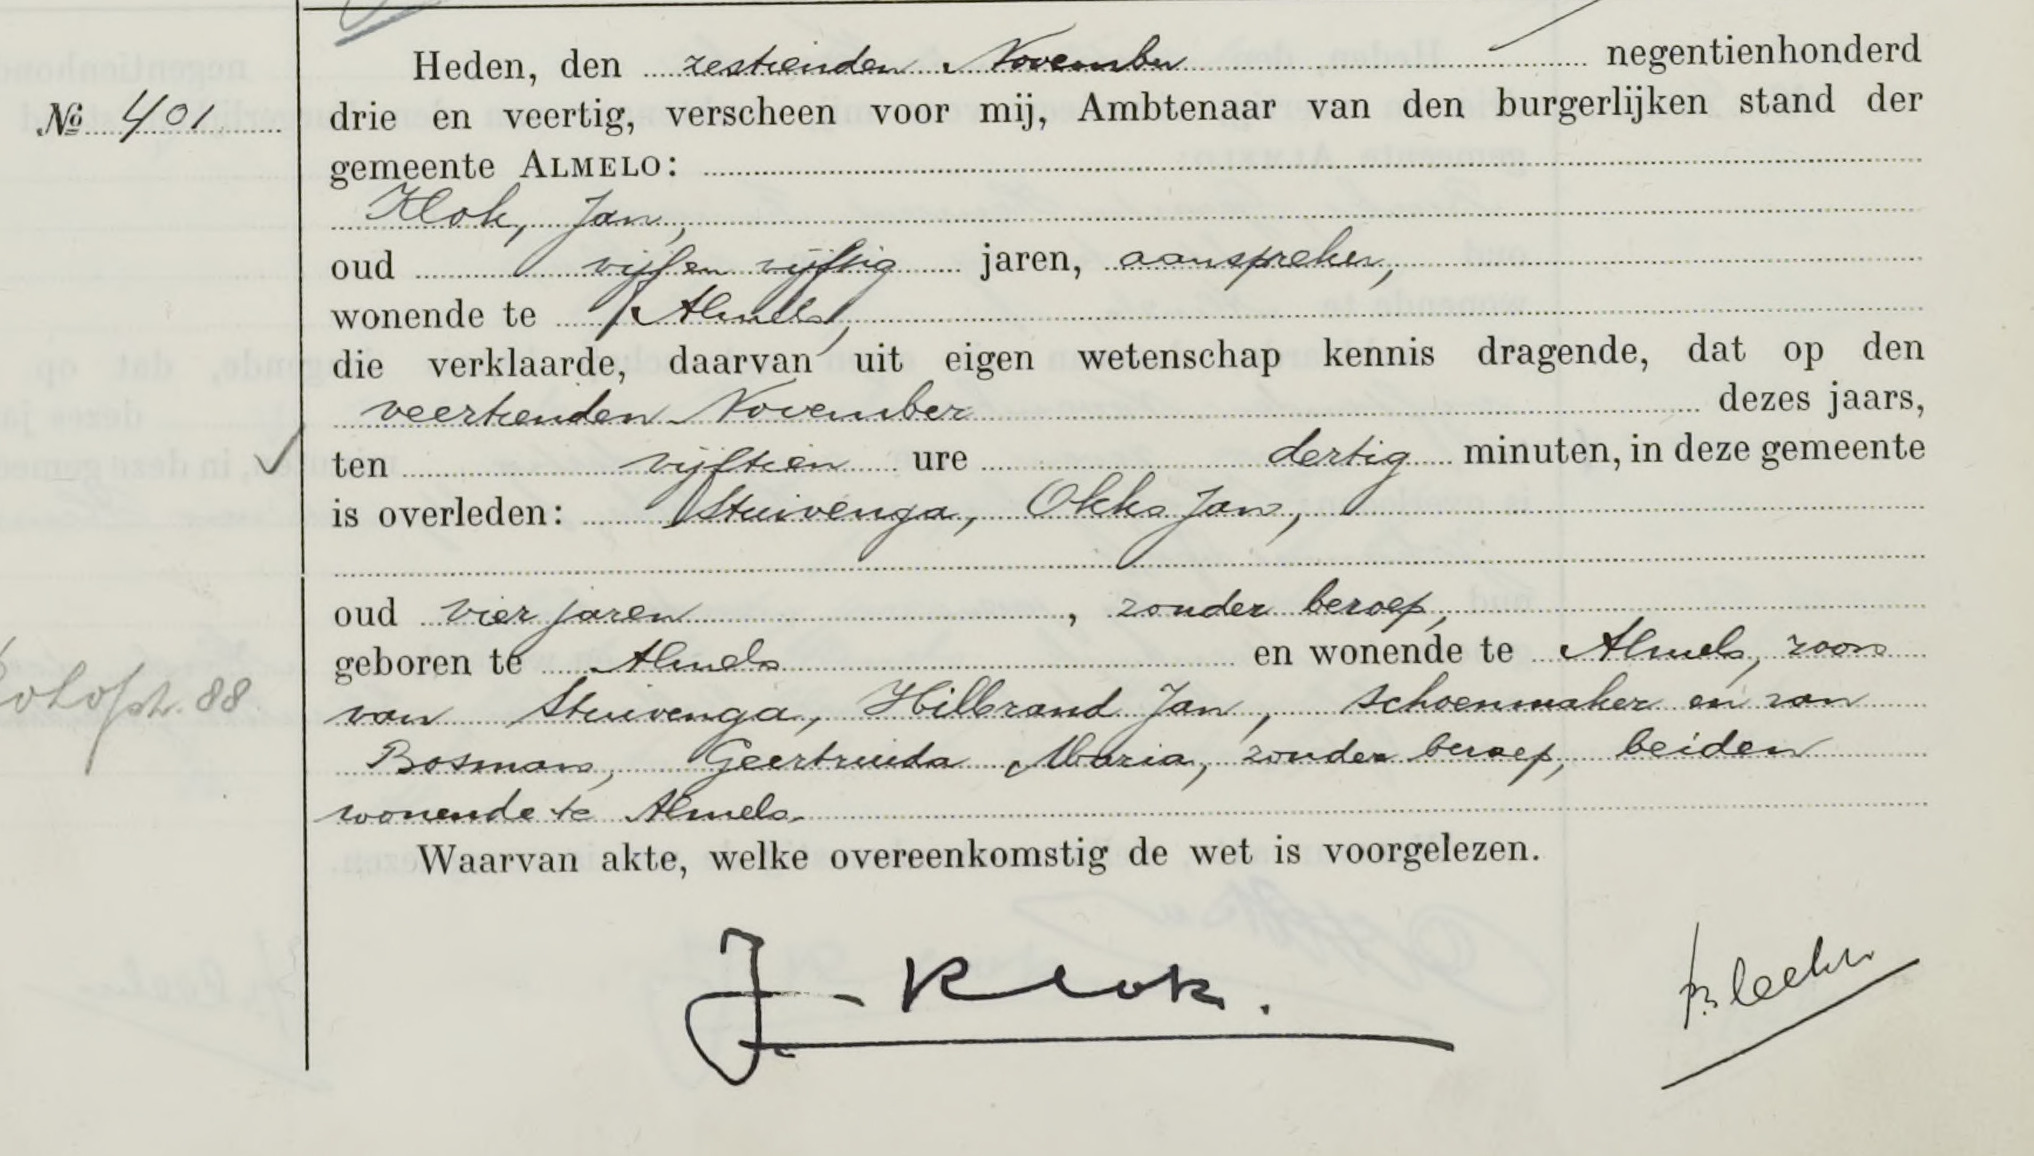 Heden, den zestienden November negentienhonderd
No 401 drie en veertig, verscheen voor mij, Ambtenaar van den burgerlijken stand der
gemeente ALMELO:
Klok, Jan,
oud vijf en vijftig jaren, aanspreker,
wonende te Almelo,
die verklaarde, daarvan uit eigen wetenschap kennis dragende, dat op den
veertienden November dezes jaars,
ten vijftien ure dertig minuten, in deze gemeente
is overleden: Stuivenga, Okko Jan,
oud vier jaren, zonder beroep,
geboren te Almelo en wonende te Almelo, zoon
van Stuivenga, Hilbrand Jan, schoenmaker en van
Bosman, Geertruida Maria, zonder beroep, beiden
wonende te Almelo.
Waarvan akte, welke overeenkomstig de wet is voorgelezen.
J. Klok.